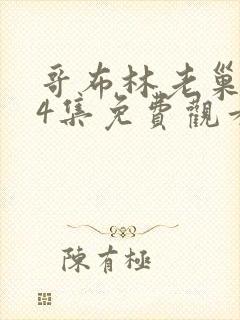 哥布林老巢
4集免費觀看
陳有極